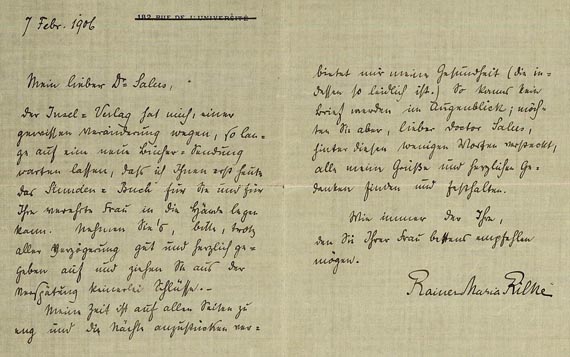 7 Febr. 1906
182 RUE DE L'UNIVERSITÉ
Mein lieber Dr Salus,
der Insel=Verlag hat mich, einer
gewissen Veränderung wegen, so lan-
ge auf eine neue Bücher=Sendung
warten lassen, dass ich Ihnen erst heute
das Stunden=Buch für Sie und für
Ihre verehrte Frau in die Hände legen
kann. Nehmen Sie's, bitte, trotz
aller Verzögerung gut und herzlich ge-
geben auf und ziehen Sie aus der
Verspätung keinerlei Schlüsse.–
Meine Zeit ist auf allen Seiten zu
eng und die Nächte anzustücken ver-
bietet mir meine Gesundheit (die in-
dessen so leidlich ist.) So kanns kein
Brief werden im Augenblick; möch-
ten Sie aber, lieber Doctor Salus,
hinter diesen wenigen Worten versteckt,
alle meine Grüsse und herzlichen Ge-
danken finden und festhalten.
Wie immer der Ihre,
den Sie Ihrer Frau bestens empfehlen
mögen.
Rainer Maria Rilke